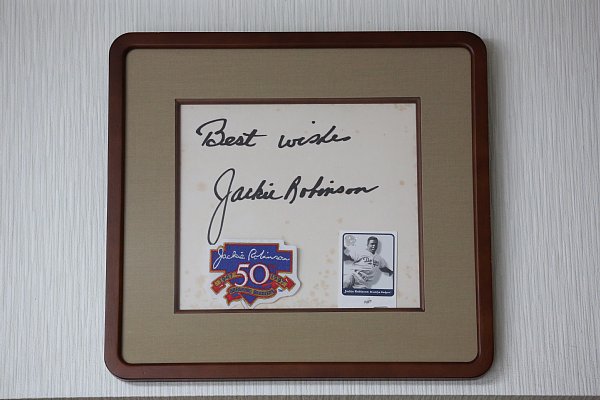 Best wishes
Jackie Robinson
Jackie Robinson
50
Jackie Robinson Brooklyn Dodgers